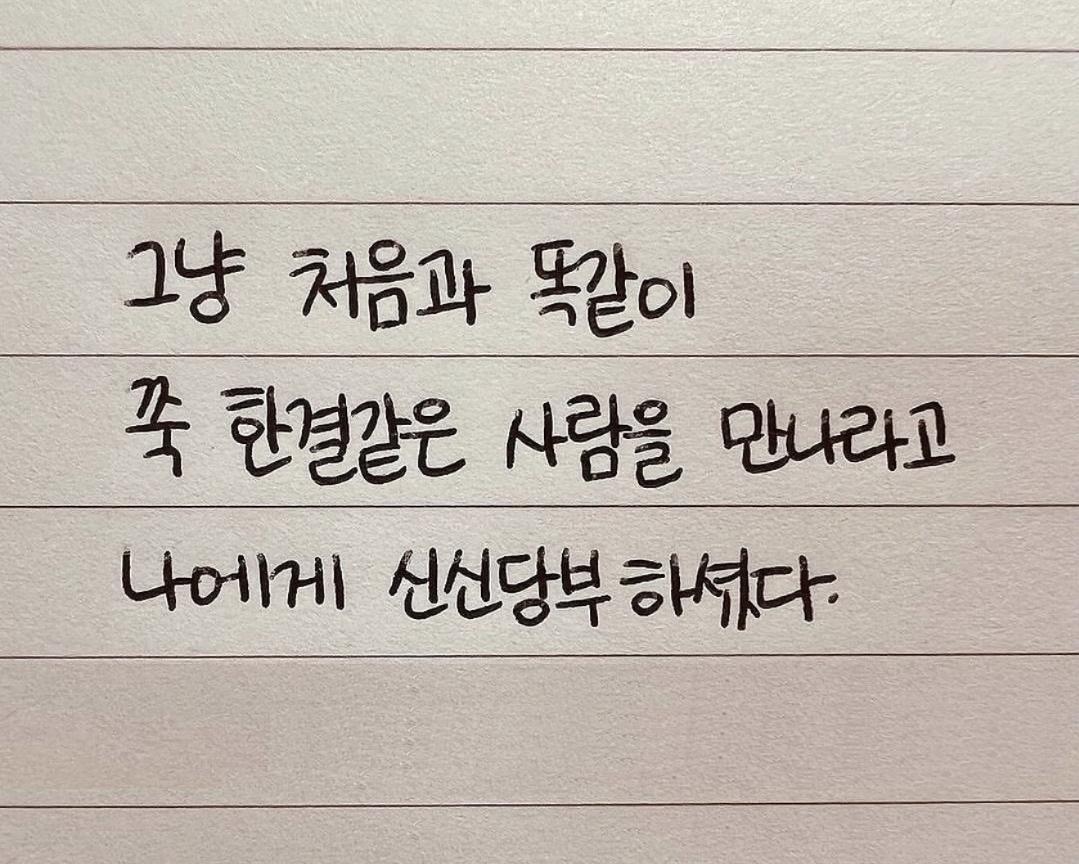 그냥 처음과 똑같이
쭉 한결같은 사람을 만나라고
나에게 신신당부하셨다.